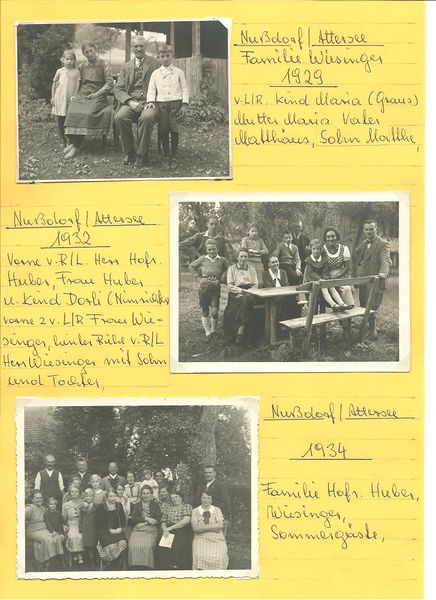 Nußdorf/Attersee
Familie Wiesinger
1929
v.L/R. Kind Maria (Graus)
Mutter Maria Vater
Matthäus, Sohn Matthe,
Nußdorf/Attersee
1932
Vorne v.R/L. Herr Hofr.
Huber, Frau Huber
u. Kind Dorli
vorne 2 v. L/R Frau Wie-
singer, hinter Reihe v.R/L
Herr Wiesinger mit Sohn
und Tochter,
Nußdorf/Attersee
1934
Familie Hofr. Huber,
Wiesinger,
Sommergäste,